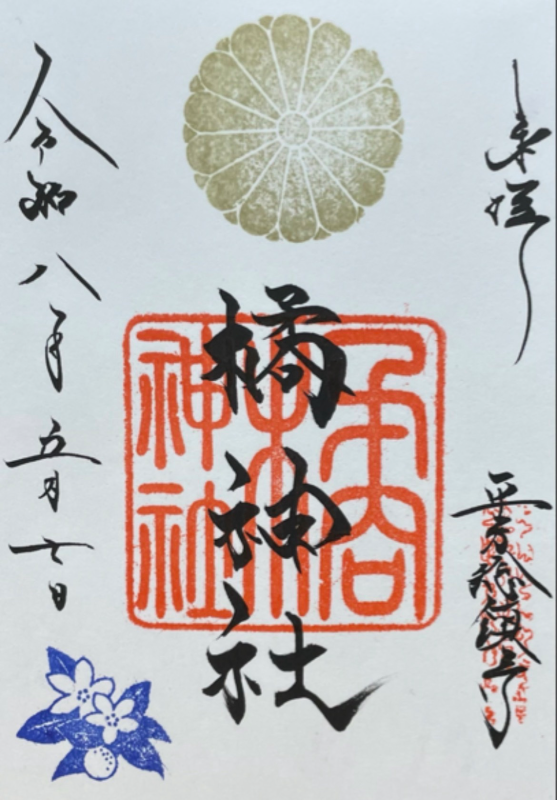 奉拝
平方総鎮守
橘神社
橘神社
令和八年五月七日